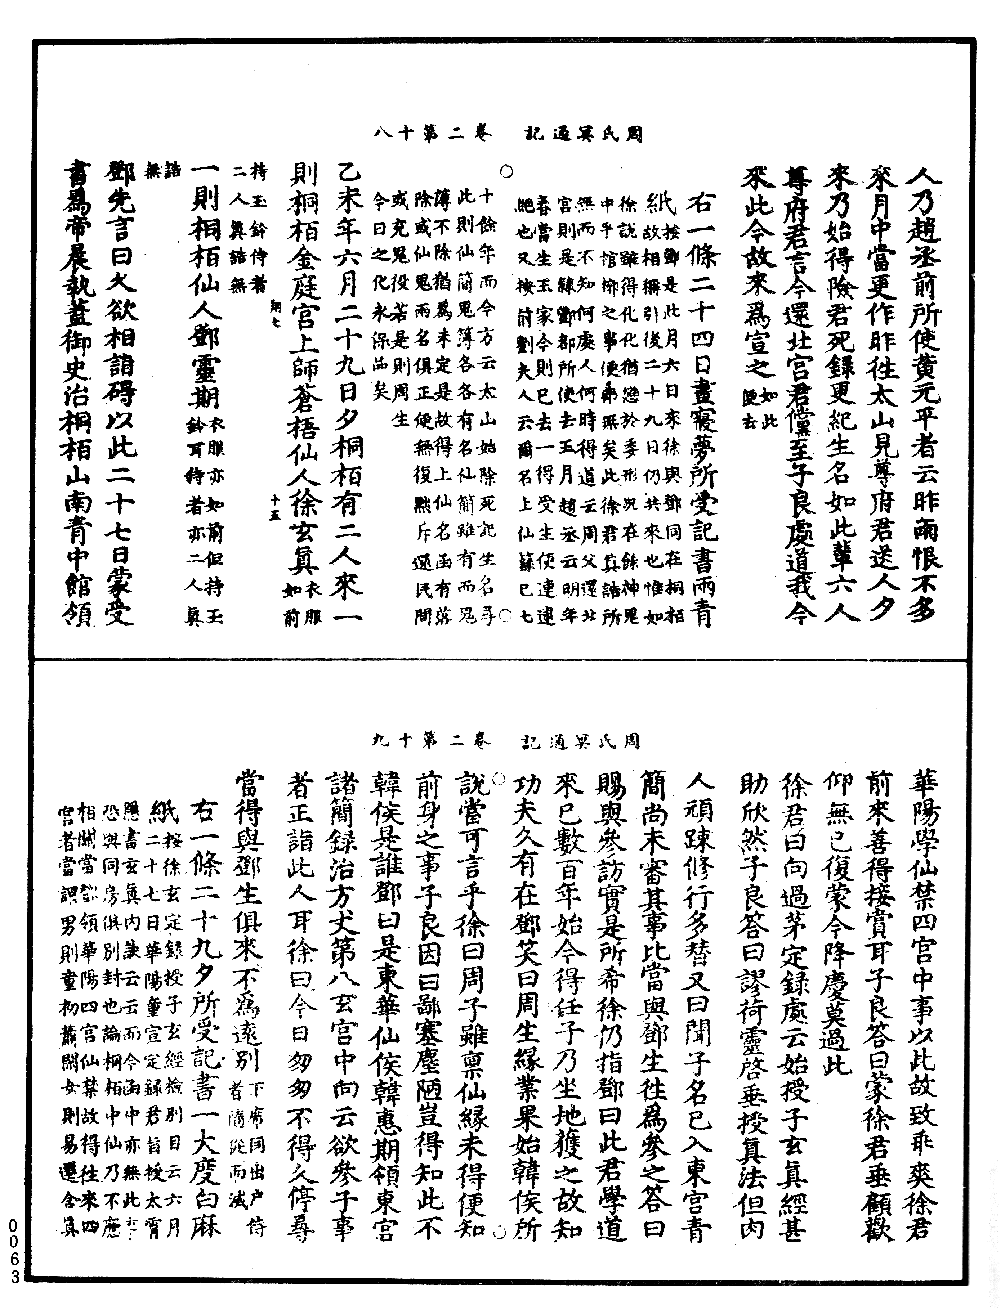 周氏冥通記　卷二第十八
人乃趙丞前所使黃元平者云昨雨恨不多
來月中當更作昨往太山見尊府君送人夕
來乃始得險君死錄更紀生名如此輩六人
尊府君言今還北宮君儻至子良處道我今
來此今故來為宣之如此便去
右一條二十四日晝寢夢所受記書兩青
紙按鄧是此月六日來徐與鄧同在桐栢
故相擕引後二十九日仍共來也惟如
徐說雖得化化猶戀於委形況在餘神鬼
中乎棺槨之事便無眾矣此徐君真誥所
無而不知何處人何時得道云周父還北
宮則是緣鄧都所使去五月趙丞云明年
春當生王家今則已去一得受生便連違
絕也又按前劉夫人云爾名上仙蘇已七
十餘年而今方云太山始除死記生名尋
此則仙簡鬼簿各各有名仙簡雖有而鬼
薄不除猶為未定是故得上仙名函有落
除或仙鬼兩名俱正便無復黜斥還民間
或充鬼役若是則周生
今日之化永保品矣
乙未年六月二十九日夕桐栢有二人來一
則桐栢金庭宮上師蒼梧仙人徐玄真衣服如前
持玉鈴侍者
二人真誥無
翔七
十五
一則桐栢仙人鄧靈期衣服亦如前但持玉鈴耳侍者亦二人真
誥無
鄧先言曰久欲相詣碍以此二十七日蒙受
書為帝晨執蓋御史治桐栢山南青中館領
周氏冥通記　卷二第十九
華陽學仙禁四宮中事以此故致乖爽徐君
前來善得接賞耳子良答曰蒙徐君垂顧歡
仰無已復蒙今降慶莫過此
徐君曰向過茅定錄處云始授子玄真經甚
助欣然子良答曰謬荷靈啓垂授真法但肉
人頑踈修行多替又曰聞子名已入東宮青
簡尚未審其事比當與鄧生往為參之答曰
賜與參訪實是所希徐仍指鄧曰此君學道
來已數百年始今得任子乃坐地獲之故知
功夫久有在鄧笑曰周生緣業果始韓侯所
說當可言乎徐曰周子雖稟仙緣未得便知
前身之事子良因曰鄙塞塵陋豈得知此不
韓侯是誰鄧曰是東華仙侯韓惠期領東宮
諸簡錄治方丈第八玄宮中向云欲參子事
者正詣此人耳徐曰今日匆匆不得久停尋
當得與鄧生俱來不為遠別下席同出戶侍者隨從而滅
右一條二十九夕所受記書一大度白麻
紙按徐玄定錄授子玄經檢別目云六月
二十七日華陽童宣定錄君旨授太霄
隱書玄真內訣云云而今函中亦無此
恐與同房俱別封也論桐栢中仙乃不應
相關當領華陽四宮仙禁故得往來四
宮者當謂男則童初蕭閑女則易遷含真
0063